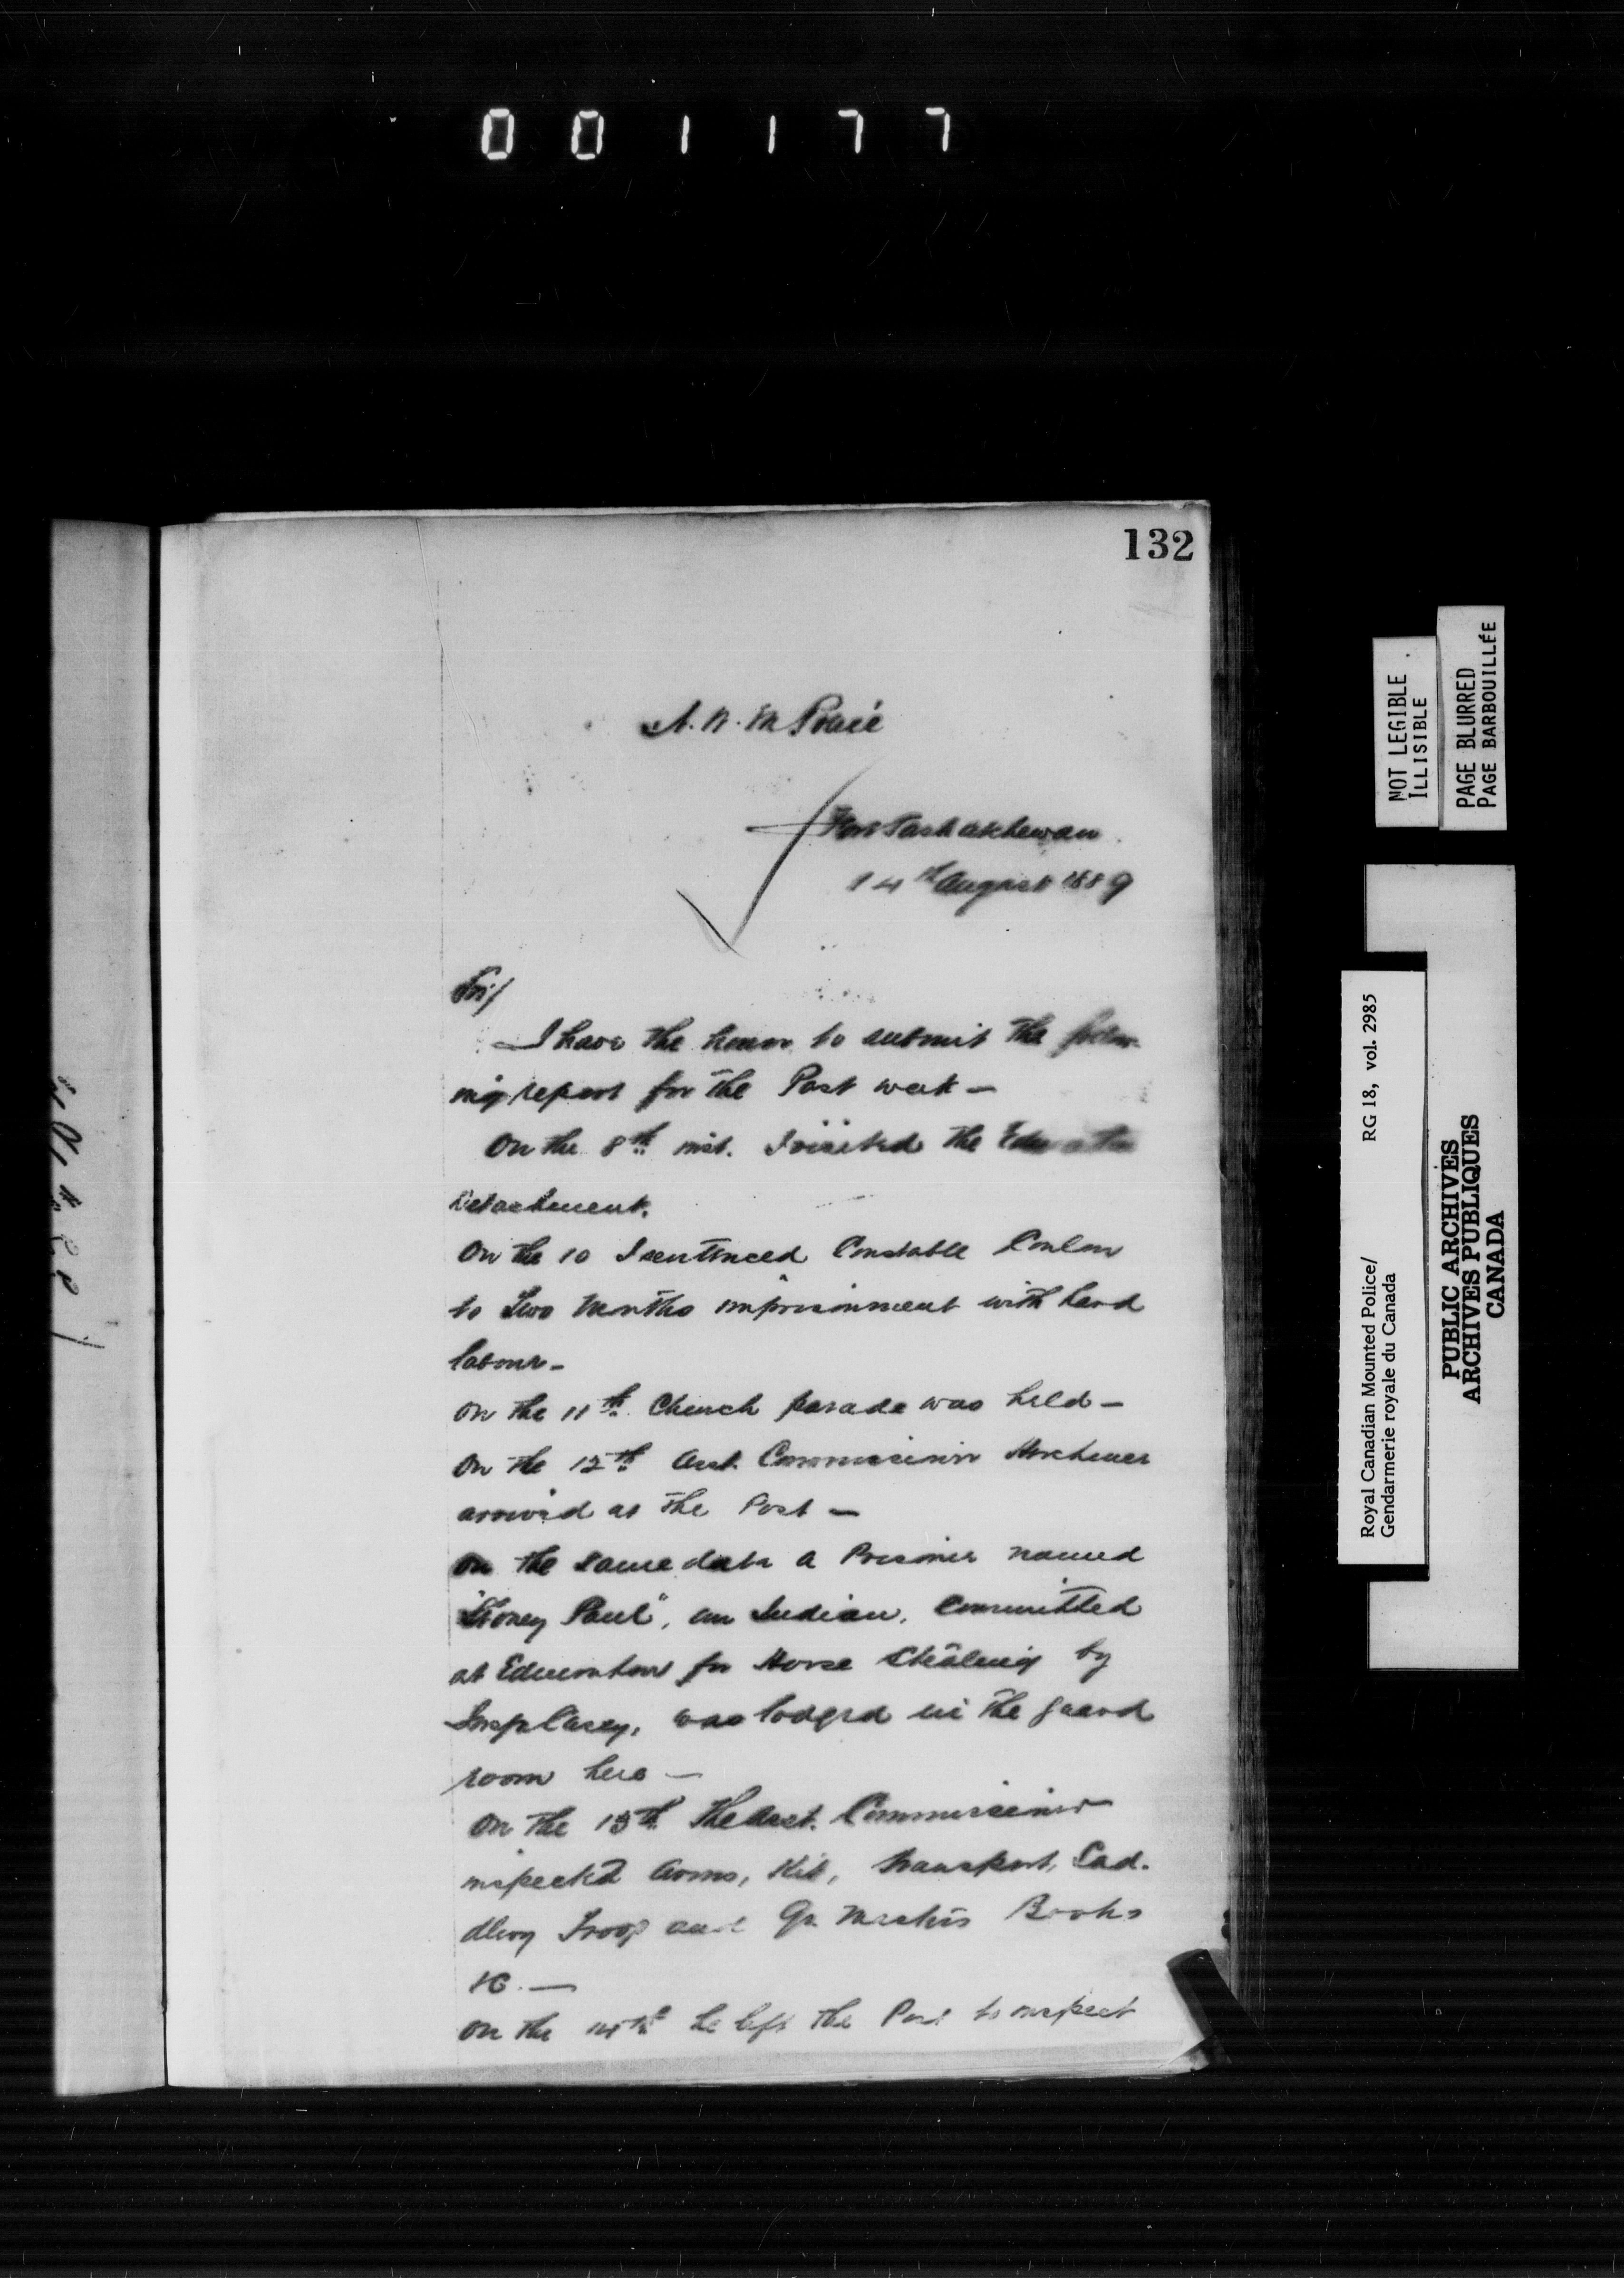 001177
132
N. W. M Police
Fort Saskatchewan
14th August 1889
Sir/
I have the honor to submit the follow-
ing report for the Past week —
On the 8th inst. I visited the Edmonton
Detachment.
On the 10 I sentenced Constable Conlon
to Two Months imprisonment with hard
labour —
On the 11th Church parade was held —
On the 12th Asst. Commissioner Herchmer
arrived at the Post —
On the same date a Prisoner named
"Stoney Paul", an Indian, Committed
at Edmonton for Horse Stealing by
Insp Casey, was lodged in the guard
room here —
On the 13th The Asst. Commissioner
inspected Arms, Kit, Transport, Sad-
dlery Troop and Qr. Masters Books
&c. —
On the 14th he left the Post to inspect
NOT LEGIBLE
ILLISIBLE
PAGE BLURRED
PAGE BARBOUILLÉE
Royal Canadian Mounted Police/ RG 18, vol. 2985
Gendarmerie royale du Canada
PUBLIC ARCHIVES
ARCHIVES PUBLIQUES
CANADA